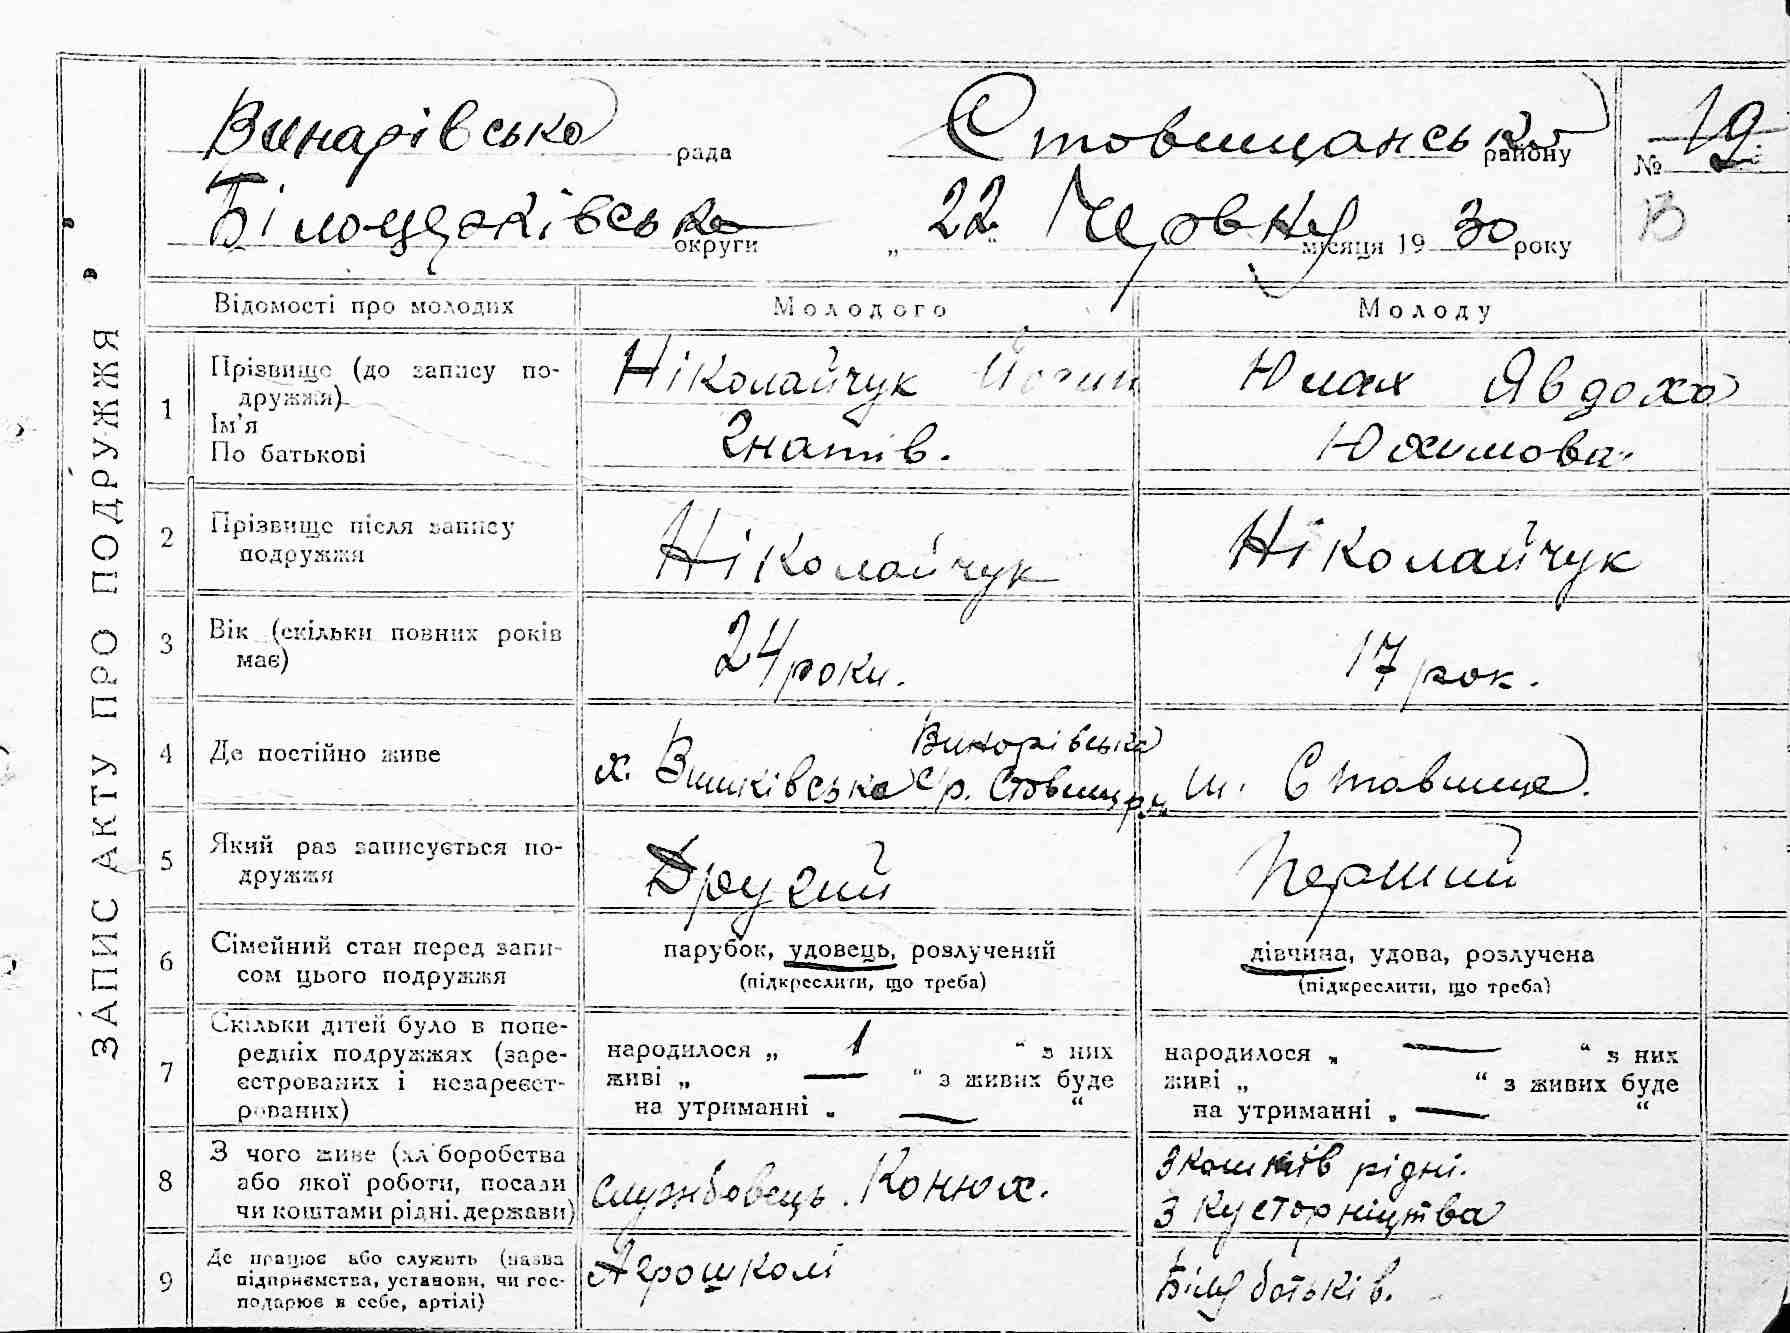 ЗАПИС АКТУ ПРО ПОДРУЖЖЯ
Винарівська рада Стовищанська району № 19
Білоцерківська округи „ 22 " Червня місяця 19 30 року 13
Відомості про молодих Молодого Молоду
1 Прізвище (до запису по- Ніколайчук Йосип Юмах Явдоха
дружжя)
Ім'я Гнатів. Юхимова
По батькові
2 Прізвище після запису Ніколайчук Ніколайчук
подружжя
3 Вік (скільки повних років 24 роки. 17 рок.
має)
Винорівська
4 Де постійно живе х. Вишківська с/р. Стовищ р.н. м. Ставище.
5 Який раз записується по- Другий Перший
дружжя
6 Сімейний стан перед запи- парубок, удовець, розлучений дівчина, удова, розлучена
сом цього подружжя (підкреслити, що треба) (підкреслити, що треба)
7 Скільки дітей було в попе-
редніх подружжях (заре- народилося „ 1 " з них народилося „ — " з них
єстрованих і незареєст- живі „ — " з живих буде живі „ " з живих буде
рованих) на утриманні „ — " на утриманні „ — "
8 З чого живе (хліборобства з коштів рідні.
або якої роботи, посади службовець. Конюх.
чи коштами рідні, держави) З кусторництва
9 Де працює або служить (назва Агрошколі
підприємства, установи, чи гос- Біля ботьків.
подарює в себе, артілі)